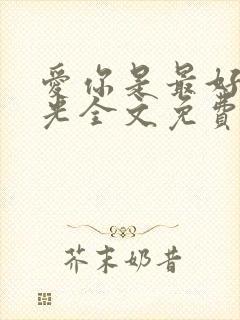 愛你是最好
光全文免費
芥末奶昔